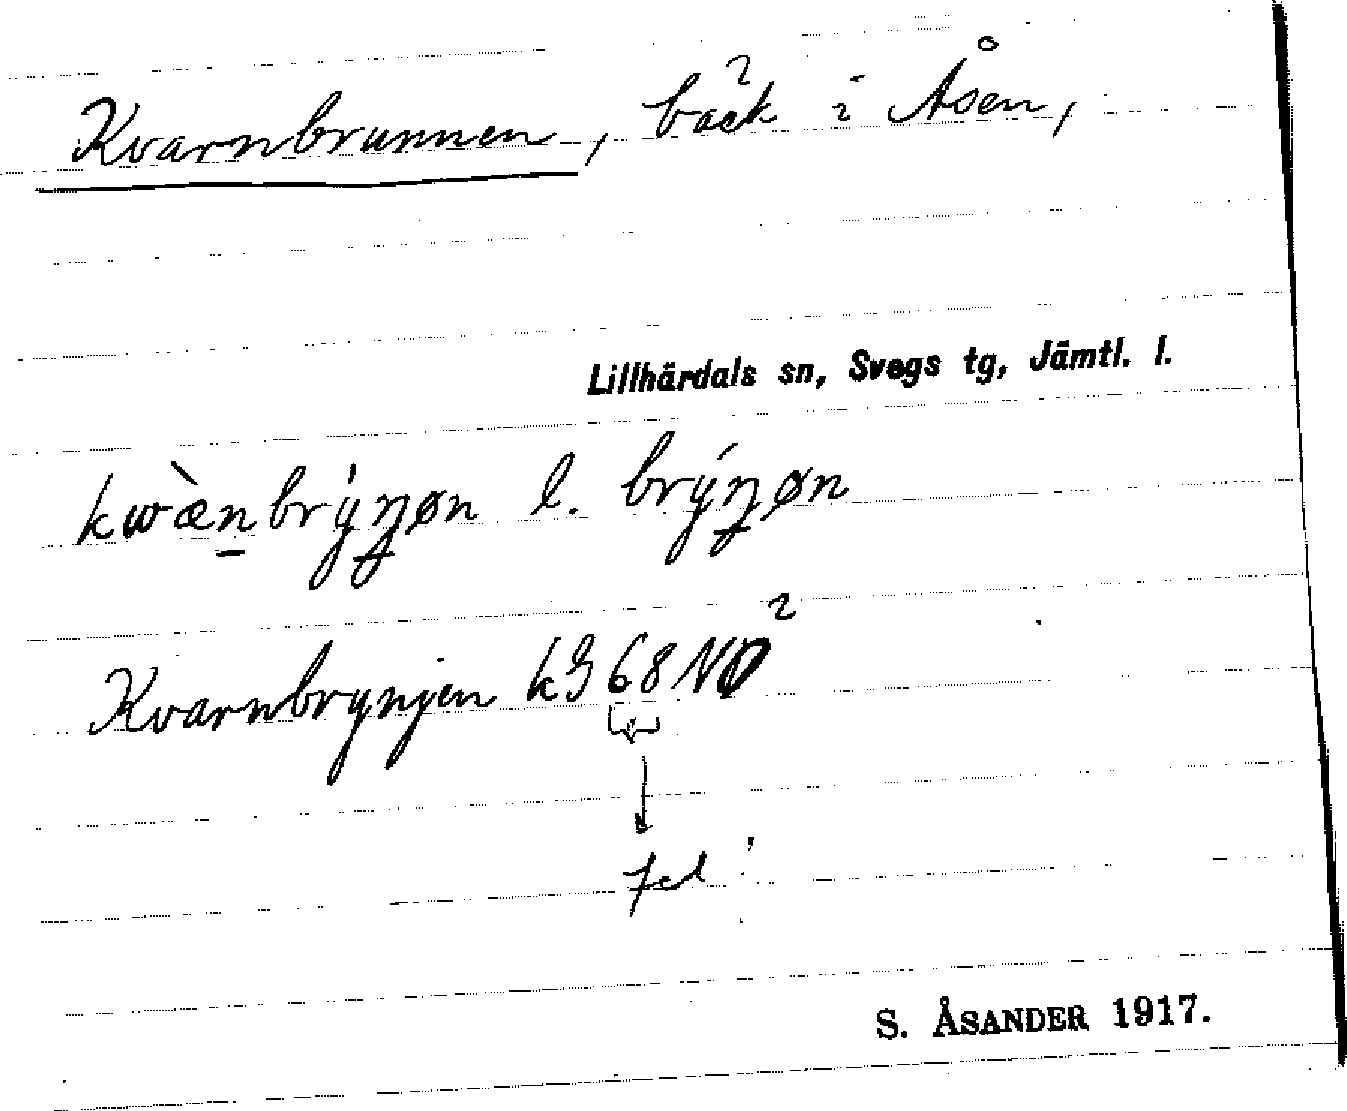 Kvarnbrunnen, bäck i Åsen,
Lillhärdals sn, Svegs tg, Jämtl. l.
kwæ̀n̲brýŋøn l. brýŋøn
Kvarnbrynjen kg 68 NO²
fel!
S. ÅSANDER 1917.